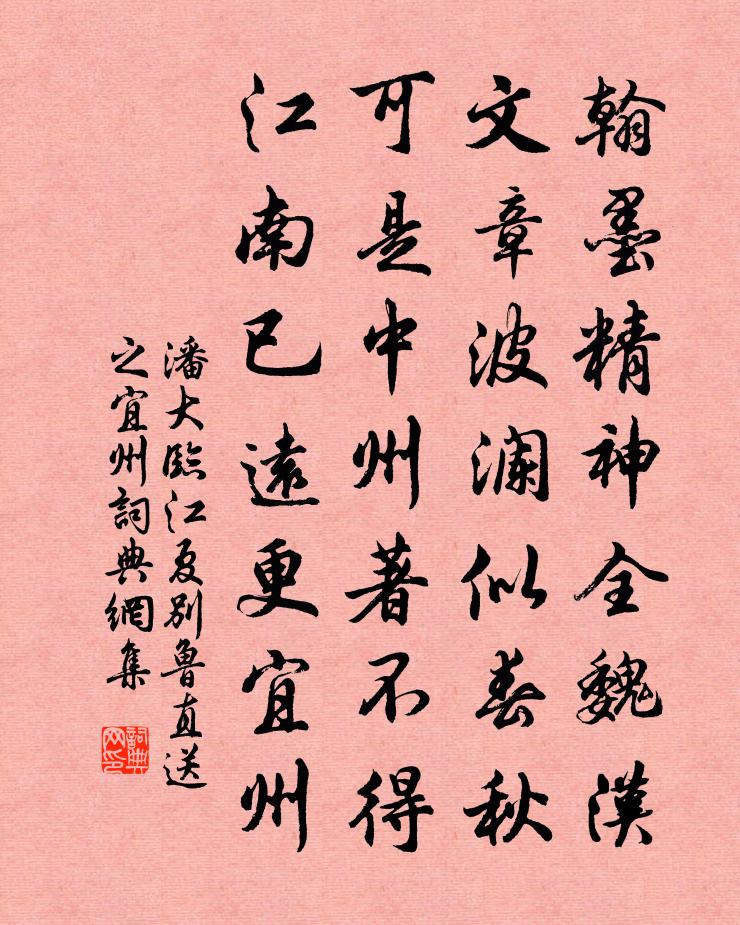 翰墨精神全魏漢
文章波澜似春秋
可是中州著不得
江南已遠更宜州
潘大臨江夏别魯直送
之宜州詞典網集
詞典
网印